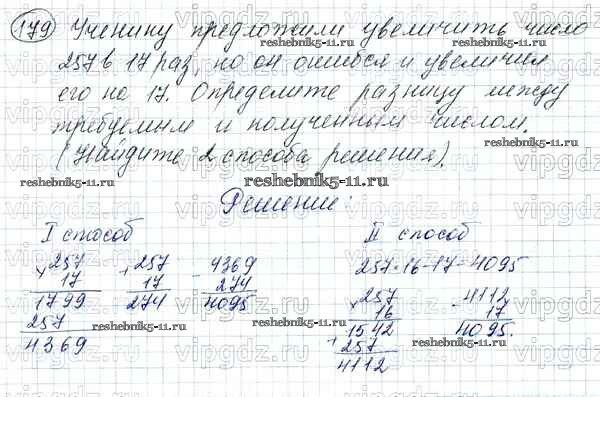 179 Ученику предложили увеличить число
257 в 17 раз, но он ошибся и увеличил
его на 17. Определите разницу между
требуемым и полученным числом.
(Найдите 2 способа решения).
Решение:
I способ
× 257
17
1799
257
4369
+ 257
17
274
- 4369
274
4095
II способ
257·16-17=4095
× 257
16
1542
+ 257
4112
- 4112
17
4095.
reshebnik5-11.ru
reshebnik5-11.ru
reshebnik5-11.ru
reshebnik5-11.ru
reshebnik5-11.ru
reshebnik5-11.ru
reshebnik5-11.ru
vipgdz.ru